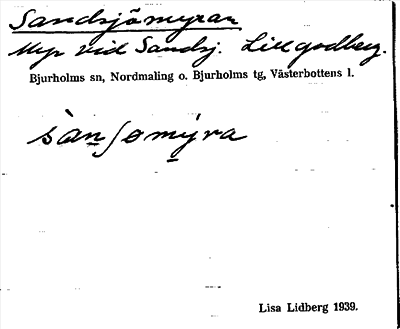 Sandsjömyran
Myr vid Sandsj. Lillgodberg.
Bjurholms sn, Nordmaling o. Bjurholms tg, Västerbottens l.
sànʃomýra
Lisa Lidberg 1939.